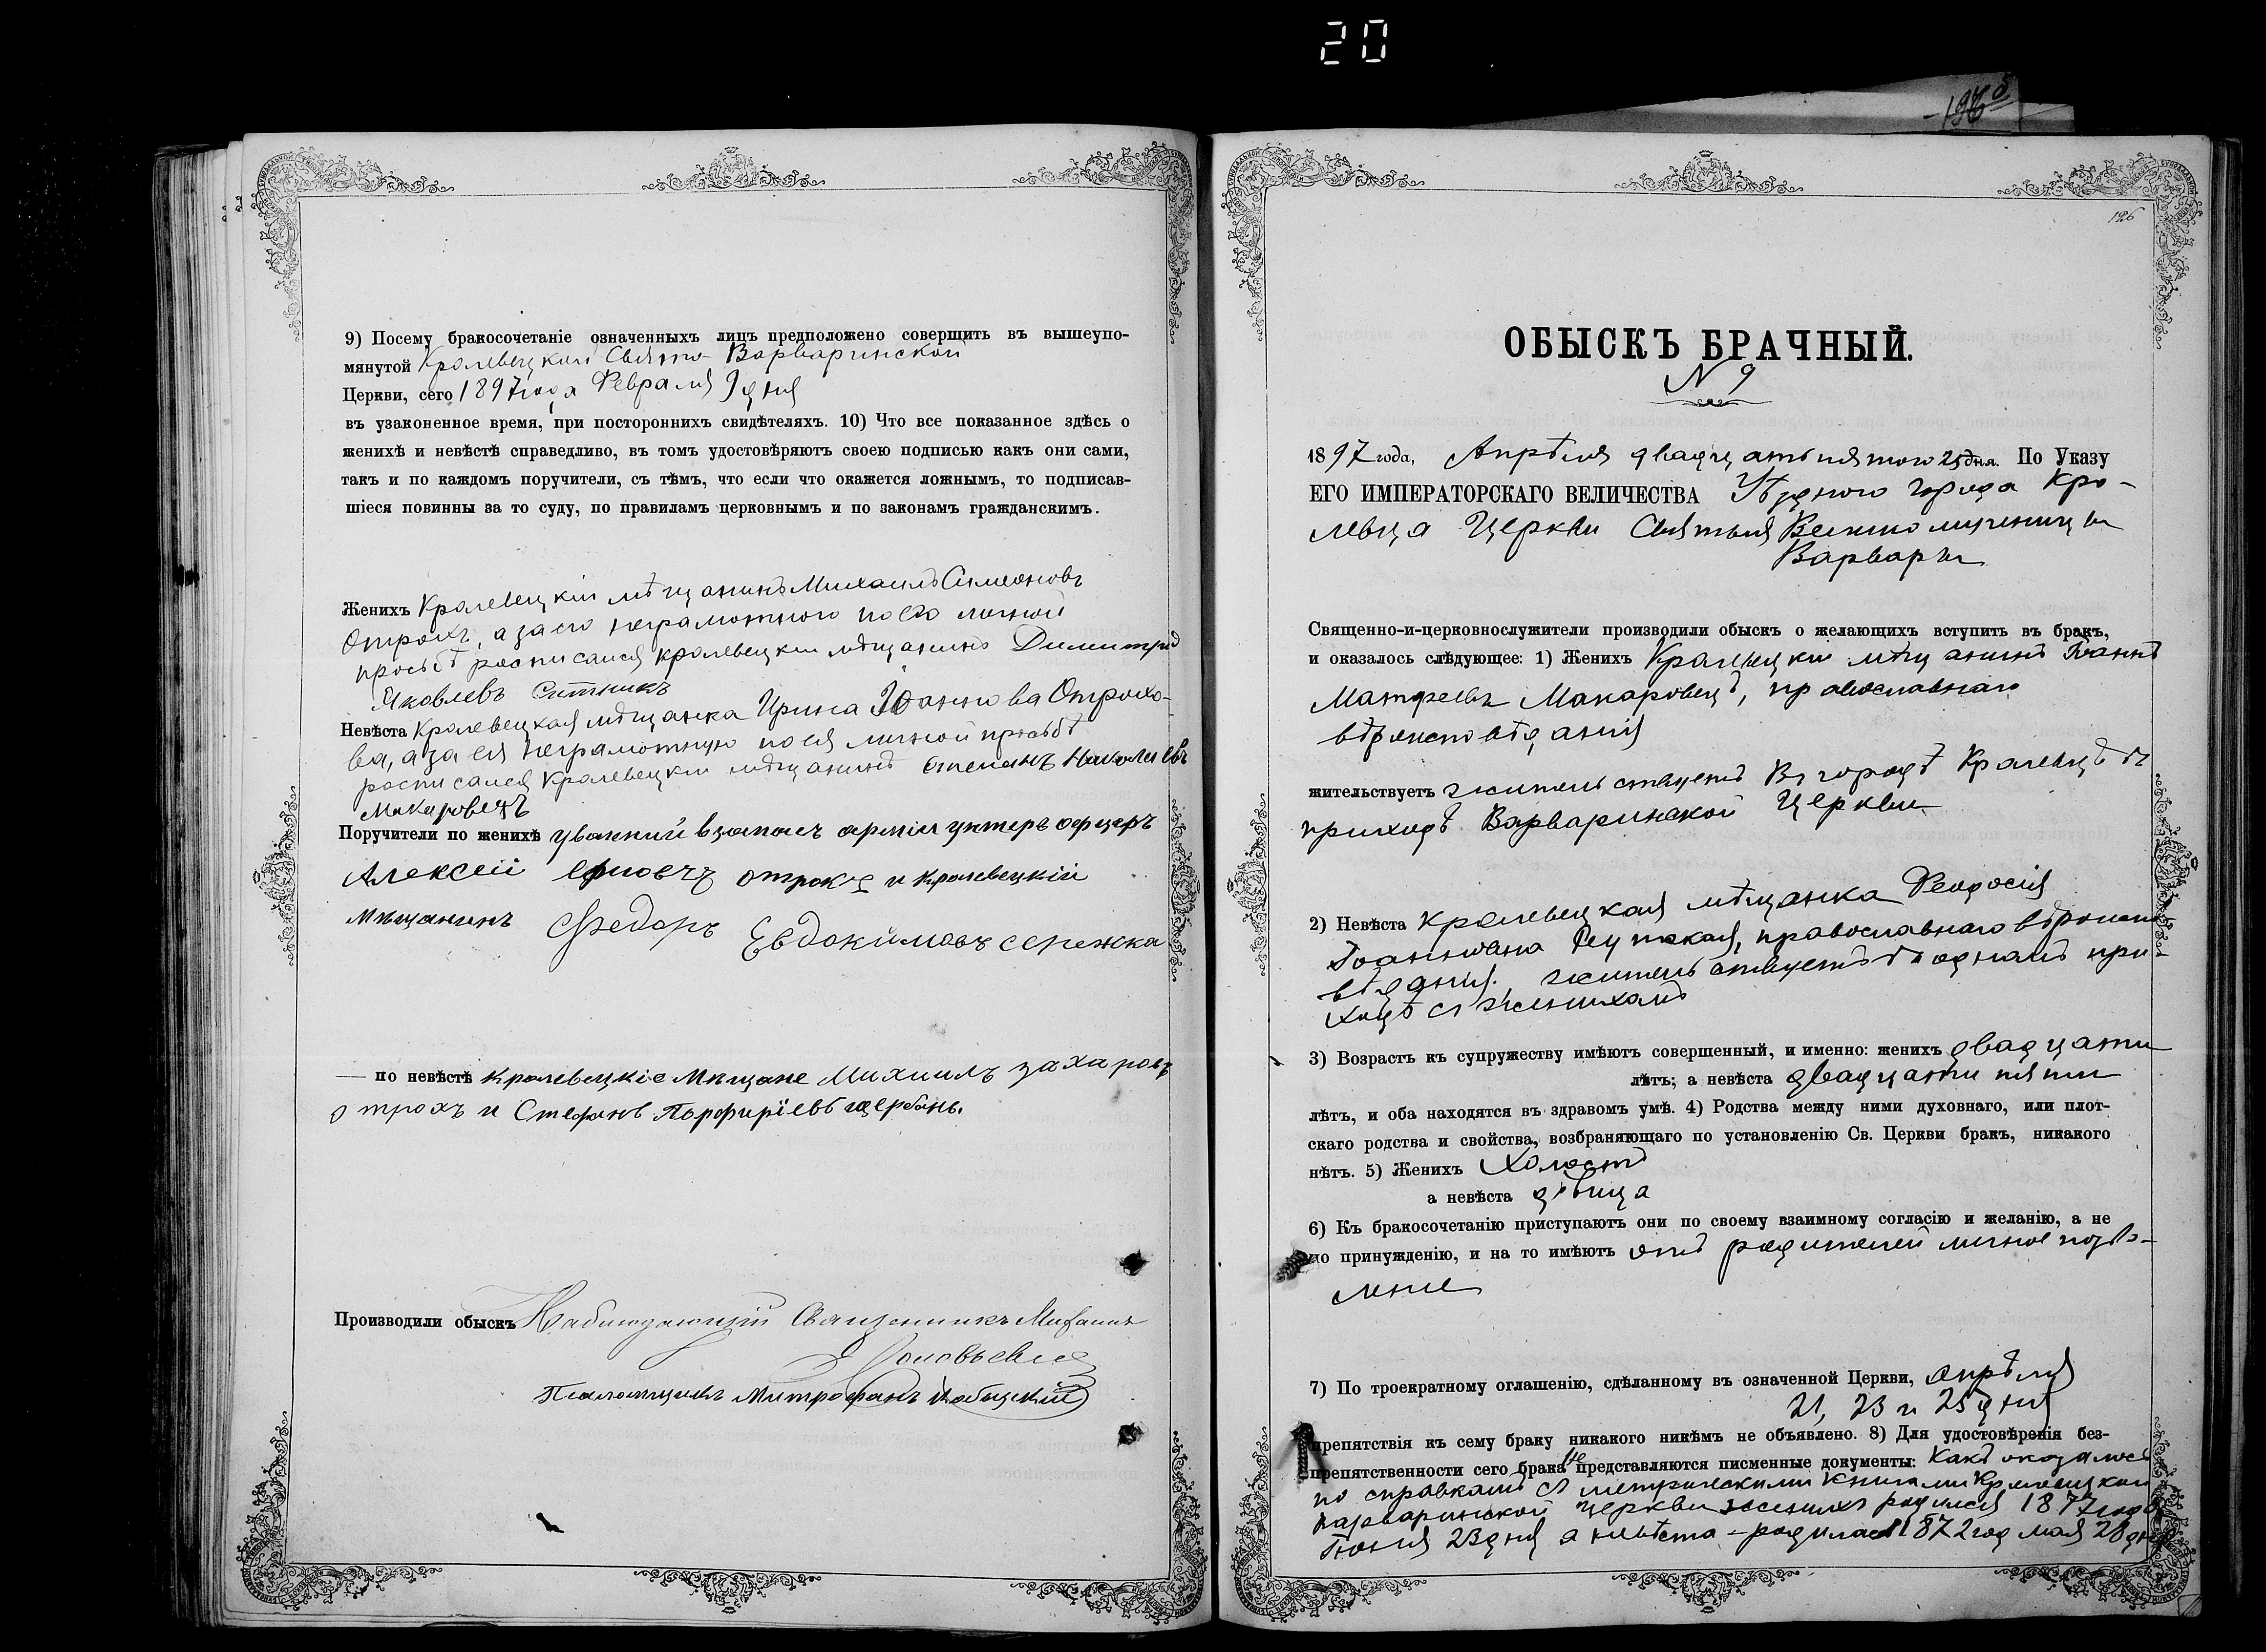 20
196 б
9) Посему бракосочетаніе означенныхъ лицъ предположено совершить въ вышеупо-
мянутой Кролевецкой Свято-Варваринской
Церкви, сего 1897 года Февраля 9 дня
въ узаконенное время, при постороннихъ свидѣтеляхъ. 10) Что все показанное здѣсь о
женихѣ и невѣстѣ справедливо, въ томъ удостовѣряютъ своею подписью какъ они сами,
такъ и по каждомъ поручители, съ тѣмъ, что если что окажется ложнымъ, то подписав-
шіеся повинны за то суду, по правиламъ церковнымъ и по законамъ гражданскимъ.
Женихъ Кролевецкій мѣщанинъ Михаилъ Симеоновъ
Отрохъ, а за его неграмотного по его личной
просьбѣ росписался кролевецкій мѣщанинъ Димитрій
Яковлевъ Ситникъ
Невѣста Кролевецкая мѣщанка Ирина Іоаннова Отрохо-
ва, а за ея неграмотную по ея личной просьбѣ
росписался Кролевецкій мѣщанинъ Степанъ Николаевъ
Макаровецъ
Поручители по женихѣ арміи унтеръ офицеръ
Алексѣй отрохъ и Кролевецкій
Мѣщанинъ Федоръ Евдокимовъ сережка
— по невѣстѣ Кролевецкіе Мѣщане Михаилъ захаровъ
отрохъ и Стефанъ Порфиріевъ щербань.
Производили обыскъ Наблюдающій Священникъ Михаилъ
Псаломщикъ Митрофанъ
126
ОБЫСКЪ БРАЧНЫЙ.
N 9
1897 года, Апрѣля двадцать пятого 25 дня. По Указу
ЕГО ИМПЕРАТОРСКАГО ВЕЛИЧЕСТВА Уѣзднаго города Кро-
левца Церкви Святыя Великомученицы
Варвары
Священно-и-церковнослужители производили обыскъ о желающихъ вступить въ бракъ,
и оказалось слѣдующее: 1) Женихъ Кролевецкій мѣщанинъ Іоаннъ
Матфеевъ Макаровецъ, православнаго
вѣроисповѣданія
жительствуетъ жительствуетъ въ городѣ Кролевцѣ въ
приходѣ Варваринской Церкви
2) Невѣста Кролевецкая мѣщанка Феодосія
Іоаннова православнаго вѣроиспо-
вѣданія, жительствуетъ въ одномъ при-
ходѣ съ женихомъ
3) Возрастъ къ супружеству имѣютъ совершенный, и именно: женихъ двадцати
лѣтъ; а невѣста двадцати пяти
лѣтъ, и оба находятся въ здравомъ умѣ. 4) Родства между ними духовнаго, или плот-
скаго родства и свойства, возбраняющаго по установленію Св. Церкви бракъ, никакого
нѣтъ. 5) Женихъ Холостъ
а невѣста дѣвица
6) Къ бракосочетанію приступаютъ они по своему взаимному согласію и желанію, а не
по принужденію, и на то имѣютъ отъ родителей личное позво-
леніе
7) По троекратному оглашенію, сдѣланному въ означенной Церкви, апрѣля
21, 23 и 25 дня
препятствія къ сему браку никакого никѣмъ не объявлено. 8) Для удостовѣренія без-
препятственности сего брака не представляются писменные документы: Какъ оказалось
по справкамъ съ метрическими книгами Кролевецкой
Варваринской Церкви женихъ родился 1877 года
Іюня 23 дня а невѣста - родилась 1872 год мая 28 дня